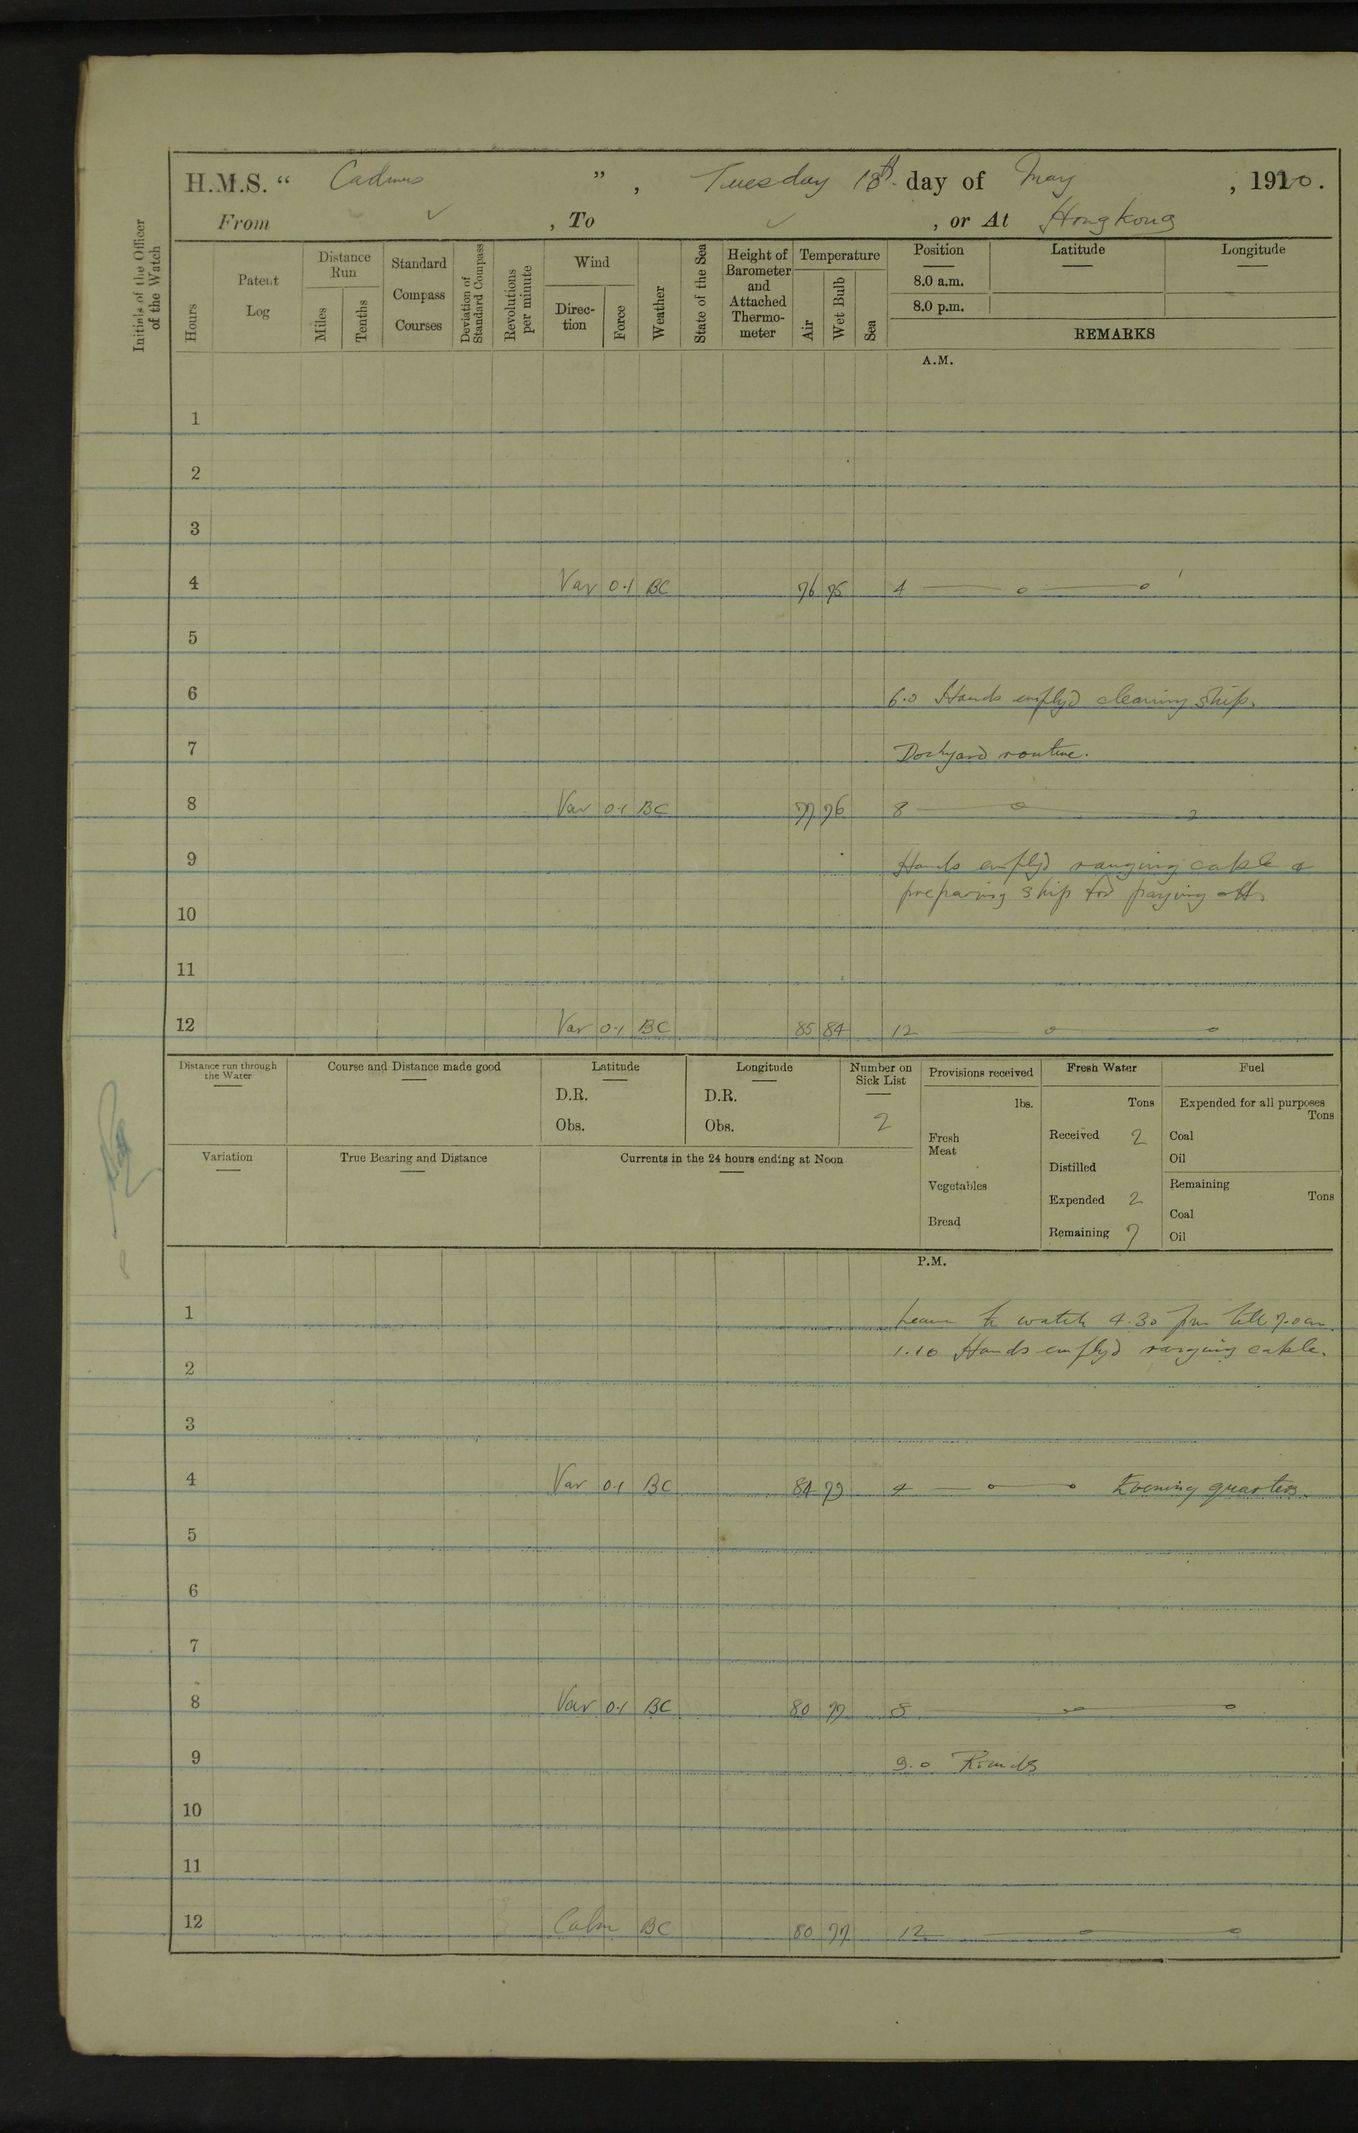 H.M.S. “ Cadmus ” , Tuesday 18th. day of May , 1920.
From ✓ , To ✓ , or At Hongkong
Initials of the Officer of the Watch
Hours
Patent Log
Distance Run
Miles
Tenths
Standard Compass Courses
Deviation of Standard Compass
Revolutions per minute
Wind
Direc-tion
Force
Weather
State of the Sea
Height of Barometer and Attached Thermo-meter
Temperature
Air
Wet Bulb
Sea
Position Latitude Longitude
8.0 a.m.
8.0 p.m.
REMARKS
A.M.
1
2
3
4 Var 0.1 BC 76 75 4
5
6 6.0 Hands emplyd cleaning ship.
7 Dockyard routine.
8 Var 0.1 BC 77 76 8
9 Hands emplyd ranging cable &
preparing ship for paying off.
10
11
12 Var 0.1 BC 85 84 12
Distance run through the Water
Course and Distance made good
Latitude
D.R.
Obs.
Longitude
D.R.
Obs.
Number on Sick List
2
Provisions received
lbs.
Fresh Meat
Vegetables
Bread
Fresh Water
Tons
Received 2
Distilled
Expended 2
Remaining 7
Fuel
Expended for all purposes
Tons
Coal
Oil
Remaining
Tons
Coal
Oil
Variation
True Bearing and Distance
Currents in the 24 hours ending at Noon
P.M.
1 Leave to watch 4.30 pm till 7.0 am.
1.10 Hands emplyd ranging cable.
2
3
4 Var 0.1 BC 84 79 4 Evening quarters.
5
6
7
8 Var 0.1 BC 80 77 8
9 9.0 Rounds
10
11
12 Calm BC 80 77 12